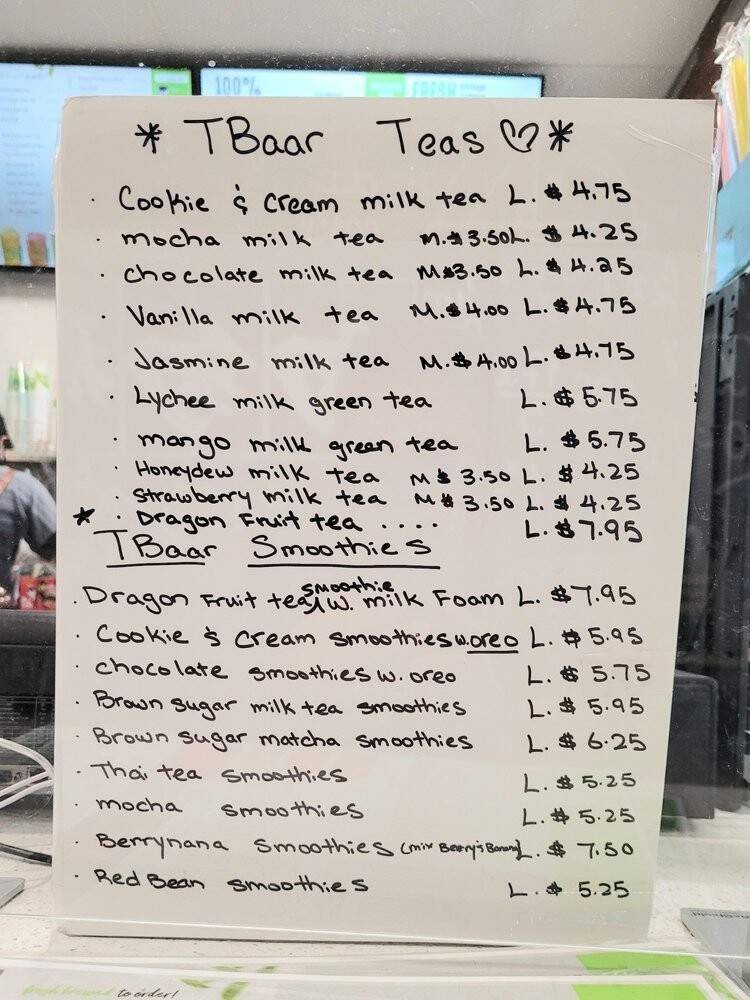 100% FRESH
* TBaar Teas ♡ *
· Cookie & Cream milk tea L. $ 4.75
· mocha milk tea M. $ 3.50 L. $ 4.25
· chocolate milk tea M $3.50 L. $ 4.25
· Vanilla milk tea M. $ 4.00 L. $ 4.75
· Jasmine milk tea M. $ 4.00 L. $ 4.75
· Lychee milk green tea L. $ 5.75
· mango milk green tea L. $ 5.75
· Honeydew milk tea M $ 3.50 L. $ 4.25
· Strawberry milk tea M $ 3.50 L. $ 4.25
* · Dragon Fruit tea .... L. $7.95
TBaar Smoothies
· Dragon Fruit tea smoothie W. milk Foam L. $7.95
· Cookie & Cream smoothies w. oreo L. $ 5.95
· chocolate smoothies w. oreo L. $ 5.75
· Brown sugar milk tea smoothies L. $ 5.95
· Brown sugar matcha smoothies L. $ 6.25
· Thai tea smoothies L. $ 5.25
· mocha smoothies L. $ 5.25
· Berrynana smoothies (mix Berry's Banana) L. $ 7.50
· Red Bean smoothies L. $ 5.25
fresh brewed to order!